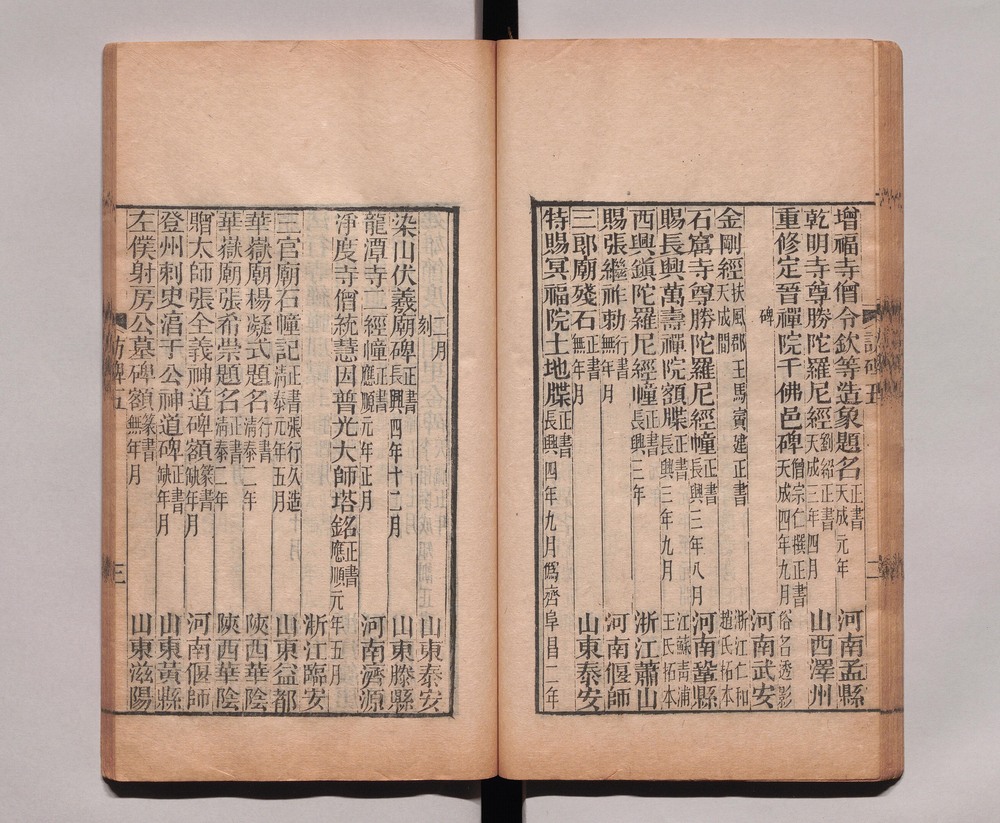 增福寺僧令欽等造象題名正書天成元年 河南孟縣
乾明寺尊勝陀羅尼經劉紹正書天成三年四月 山西澤州
重修定晉禪院千佛邑碑僧宗仁撰正書天成四年九月俗名透影
碑 河南武安
金剛經扶風郡王馬賨建正書天成間 浙江仁和趙氏拓本
石窟寺尊勝陀羅尼經幢正書長興三年八月 河南鞏縣
賜長興萬壽禪院額牒正書長興三年九月 江蘇青浦王氏拓本
西興鎮陀羅尼經幢正書長興三年 浙江蕭山
賜張繼祚勅行書無年月 河南偃師
三郎廟殘石正書無年月 山東泰安
特賜冥福院土地牒正書長興四年九月僞齊阜昌二年
二月刻 山東泰安
染山伏羲廟碑正書長興四年十二月 山東滕縣
龍潭寺二經幢正書應順元年正月 河南濟源
淨度寺僧統慧因普光大師塔銘正書應順元年五月
浙江臨安
三官廟石幢記正書張行久造清泰元年五月 山東益都
華嶽廟楊凝式題名行書清泰二年 陝西華陰
華嶽廟張希崇題名正書清泰二年 陝西華陰
贈太師張全義神道碑額篆書缺年月 河南偃師
登州刺史淳于公神道碑正書缺年月 山東黃縣
左僕射房公墓碑額篆書無年月 山東滋陽
訪碑五 三